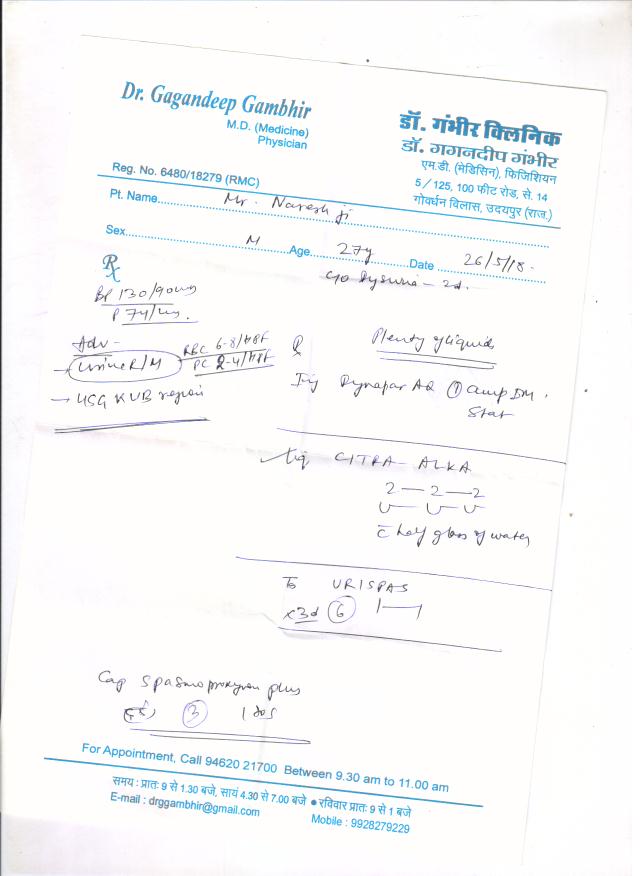 Dr. Gagandeep Gambhir
M.D. (Medicine)
Physician
Reg. No. 6480/18279 (RMC)
डॉ. गंभीर क्लिनिक
डॉ. गगनदीप गंभीर
एम.डी. (मेडिसिन), फिजिशियन
5/125, 100 फीट रोड, से. 14
गोवर्धन विलास, उदयपुर (राज.)
Pt. Name Mr. Naresh ji
Sex M Age 27y Date 26/5/18.
c/o Dysuria - 2d.
Rx
BP 130/90
P 74/
Adv -
→ Urine R/M RBC 6-8/HPF
PC 2-4/HPF
→ USG KUB region
Plenty of liquids
Inj Dynapar AQ 1 amp IM.
Stat
Liq CITRA-ALKA
2 — 2 — 2
c half glass of water
URISPAS
x3d 6 1—1
Cap Spasmoproxyvon plus
3 1 SOS
For Appointment, Call 94620 21700 Between 9.30 am to 11.00 am
समय : प्रातः 9 से 1.30 बजे, सायं 4.30 से 7.00 बजे ● रविवार प्रातः 9 से 1 बजे
E-mail : drggambhir@gmail.com Mobile : 9928279229